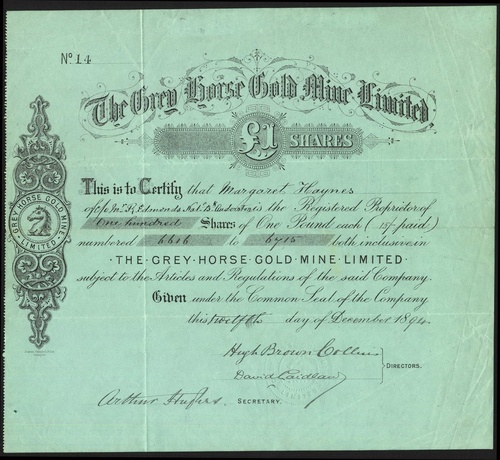 No. 14
The Grey Horse Gold Mine Limited
£1 SHARES
This is to Certify that Margaret Haynes
of c/o Mr. H. Edmonds Nat. Bk. is the Registered Proprietor of
One hundred Shares of One Pound each ( paid)
numbered 6616 to 6715 both inclusive in
·THE·GREY·HORSE·GOLD·MINE·LIMITED·
subject to the Articles and Regulations of the said Company.
Given under the Common Seal of the Company
this twelfth day of December 1894
Hugh Brown Collins
David Laidlaw
DIRECTORS.
Arthur Hughes SECRETARY.
GREY HORSE GOLD MINE LIMITED